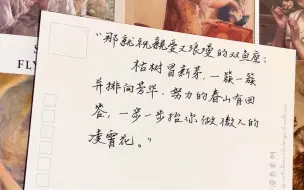 "那就祝亲爱又浪漫的双鱼座:
枯树冒新芽,一簇一簇
并排向芳华,努力的春山有回
答,一步一步抬你做傲人的
凌霄花。"
FLY